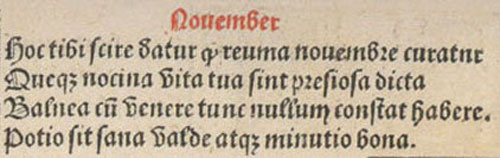 Nouember
Hoc tibi scire datur qͥ reuma nouembre curatur
Queqꝫ nociua vita tua sint presiosa dicta
Balnea cū venere tunc nullum constat habere.
Potio sit sana valde atqꝫ minutio bona.